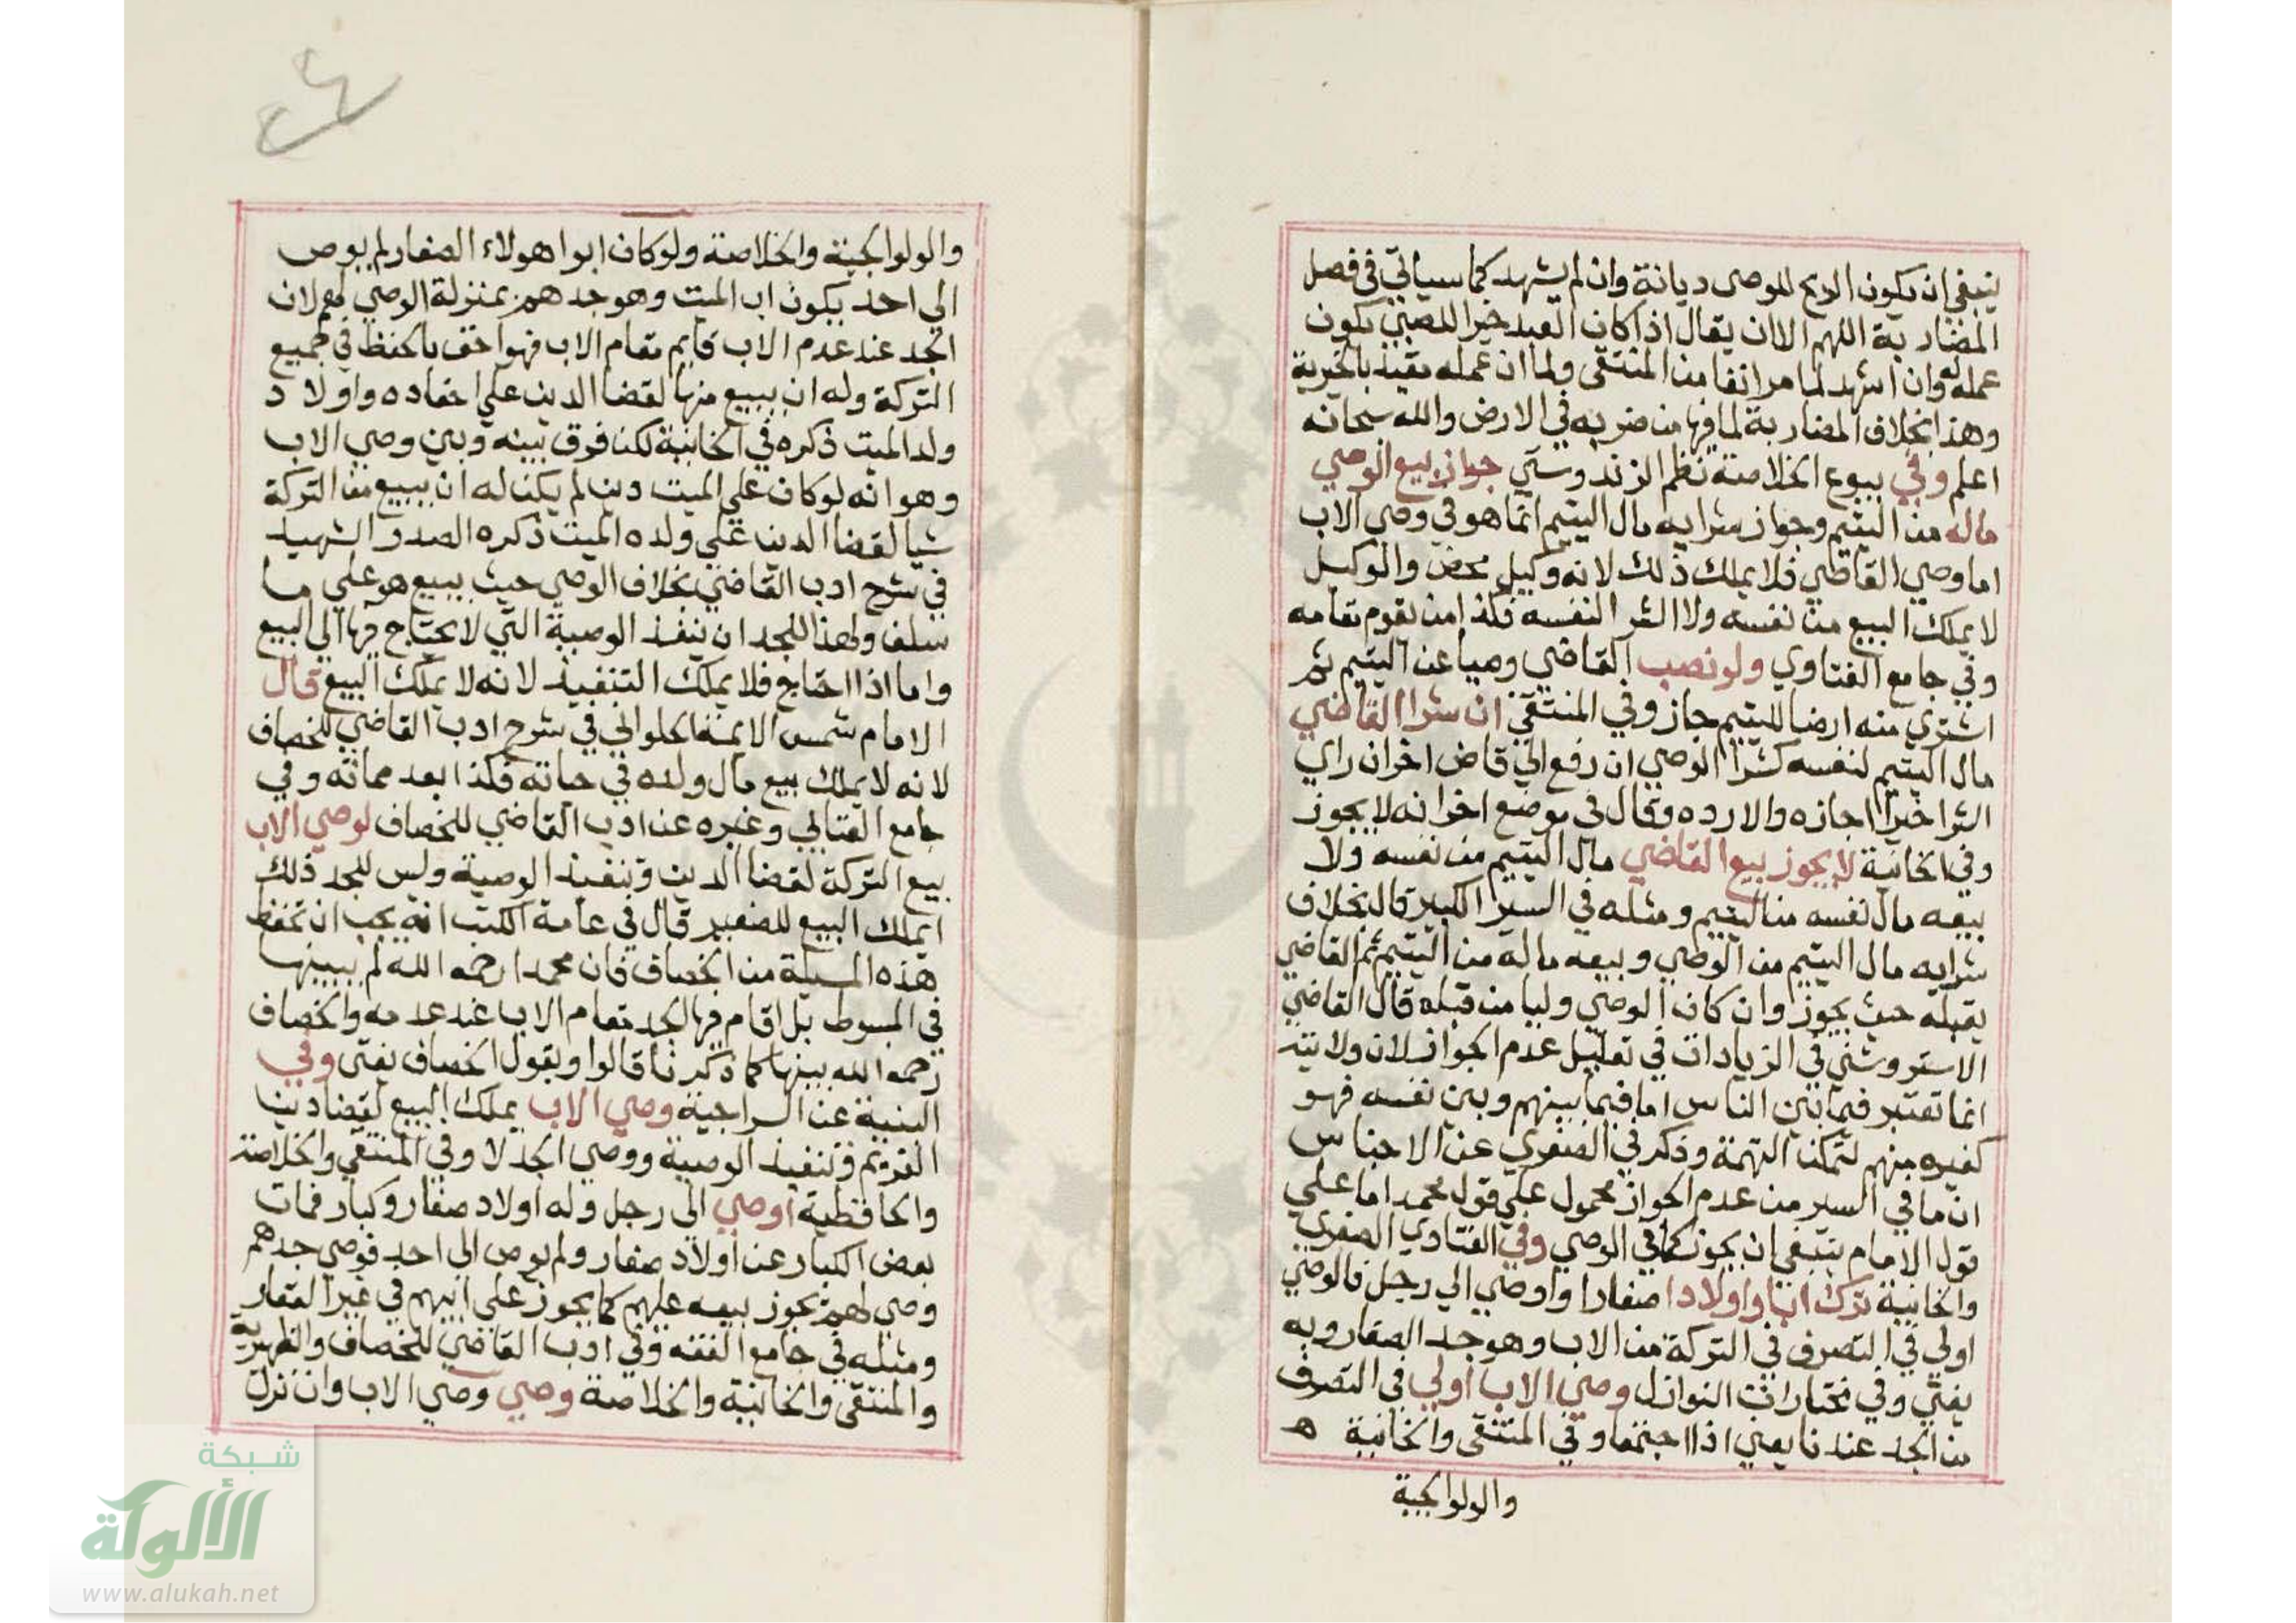 ينبغي ان يكون الربح للوصي ديانة وان لم يشهد كما سياتي في فصل
المضاربة اللهم الا ان يقال اذا كان العبد خيرا للصبي يكون
عمله له وان اشهد لما مر انفا من المنتقى ولما ان عمله مقيد بالخيرية
وهذا بخلاف المضاربة لما فيها من ضربه في الارض والله سبحانه
اعلم وفي بيوع الخلاصة نظم الزندوستي جواز بيع الوصي
ماله من اليتيم وجواز شرايه مال اليتيم انما هو في وصي الاب
اما وصي القاضي فلا يملك ذلك لانه وكيل محض والوكيل
لا يملك البيع من نفسه ولا الشرا لنفسه فكذا من يقوم مقامه
وفي جامع الفتاوي ولو نصب القاضي وصيا عن اليتيم ثم
اشتري منه ارضا لليتيم جاز وفي المنتقي ان شرا القاضي
مال اليتيم لنفسه كشرا الوصي ان رفع الي قاض اخر ان راي
الشرا خيرا اجازه والا رده وقال في موضع اخر انه لا يجوز
وفي الخانية لا يجوز بيع القاضي مال اليتيم من نفسه ولا
بيعه مال نفسه من اليتيم ومثله في السير الكبير قال بخلاف
شرايه مال اليتيم من الوصي وبيعه ماله من اليتيم ثم القاضي
يقبله حيث يجوز وان كان الوصي وليا من قبله قال القاضي
الاستروشني في الزيادات في تعليل عدم الجواز لان ولايته
انما تعتبر فيما بين الناس اما فيما بينهم وبين نفسه فهو
كغيره منهم لتمكن التهمة وذكر في الصغري عن الاجناس
ان ما في السير من عدم الجواز محمول علي قول محمد اما علي
قول الامام ينبغي ان يجوز كما في الوصي وفي الفتاوي الصغري
والخانية ترك ابا واولادا صغارا واوصي الي رجل فالوصي
اولي في التصرف في التركة من الاب وهو جد الصغار وبه
يفتي وفي مختارات النوازل وصي الاب اولي في التصرف
من الجد عندنا يعني اذا اجتمعا وفي المنتقى والخانية ه
والولوالجية
والولوالجية والخلاصة ولو كان ابوا هولاء الصغار لم يوص
الي احد يكون اب الميت وهو جدهم بمنزلة الوصي لهم لان
الجد عند عدم الاب قايم مقام الاب فهو احق بالحفظ في جميع
التركة وله ان يبيع منها لقضا الدين علي احفاده واولاد
ولد الميت ذكره في الخانية لكن فرق بينه وبين وصي الاب
وهو انه لو كان علي الميت دين لم يكن له ان يبيع من التركة
شيا لقضا الدين علي ولده الميت ذكره الصدر الشهيد
في شرح ادب القاضي بخلاف الوصي حيث يبيع هو علي ما
سلف ولهذا للجد ان ينفذ الوصية التي لا يحتاج فيها الي البيع
واما اذا احتاج فلا يملك التنفيذ لانه لا يملك البيع قال
الامام شمس الايمة الحلوالي في شرح ادب القاضي للخصاف
لانه لا يملك بيع مال ولده في حياته فكذا بعد مماته وفي
جامع العتابي وغيره عن ادب القاضي للخصاف لوصي الاب
بيع التركة لقضا الدين وتنفيذ الوصية وليس للجد ذلك
ايملك البيع للصغير قال في عامة الكتب انه يجب ان تحفظ
هذه المسيلة من الخصاف فان محمدا رحمه الله لم يبينها
في المبسوط بل اقام فيها الجد مقام الاب عند عدمه والخصاف
رحمه الله بينها كما ذكرنا قالوا وبقول الخصاف يفتى وفي
المنية عن السراجية وصي الاب يملك البيع لقضا دين
الغريم وتنفيذ الوصية ووصي الجد لا وفي المنتقي والخلاصة
والحافظية اوصي الي رجل وله اولاد صغار وكبار فمات
بعض الكبار عن اولاد صغار ولم يوص الي احد فوصي جدهم
وصي لهم يجوز بيعه عليهم كما يجوز علي ابيهم في غير العقار
ومثله في جامع الفقه وفي ادب القاضي للخصاف والظهيرية
والمنتقى والخانية والخلاصة وصي وصي الاب وان نزل
شبكة
الألوكة
www.alukah.net